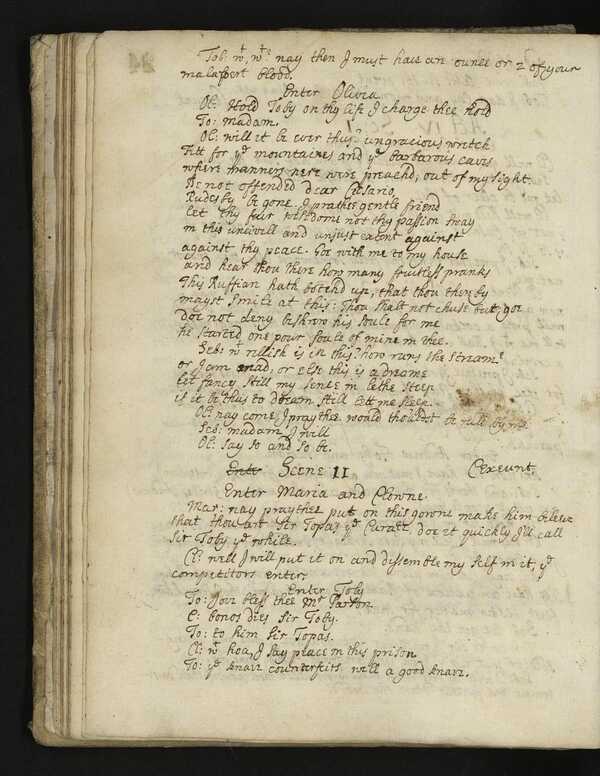 Tob: wt, wt? nay then I must have an ounce or 2 of your
malapert blood.
Enter Olivia
Ol: Hold Toby on thy life I charge thee hold
To: madam.
Ol: will it be ever thus? ungracious wretch
Fitt for ye mountaines and ye barbarous caves
where manners nere were preachd, out of my sight.
Be not offended dear Cesario,
Rudesby be gone. I prathee gentle friend
let thy fair wisdome not thy passion sway
in this uncivill and unjust extent against
against thy peace. Goe with me to my house
and hear thou there how many fruitless pranks
This Ruffian hath botchd up, that thou thereby
mayst smile at this: Thou shalt not chuse but goe
doe not deny beshrew his soule for me
he started one poor soule of mine in thee.
Seb: wt rellish is in this? how runs the streame
or I am mad, or else this is a dreame
let fancy still my sence in lethe steep
if it be thus to dream still lett me sleep.
Ol: nay come I praythee would thoudst be ruld by me
Seb: madam I will
Ol: say so and so be.
Ente Scene 11 Exeunt.
Enter Maria and Clowne
Mar: nay praythee put on this gowne make him beleive
that thou art Sir Topas ye Curate, doe it quickly I'll call
Sir Toby ye while.
Cl: well I will put it on and dissemble my self in it, ye
competitors enter.
Enter Toby
To: Jove bless thee Mr Parson.
C: bonos dies Sir Toby.
To: to him Sir Topas.
Cl: wt hoa, I say peace in this prison
To: ye knave counterfeits well a good knave.